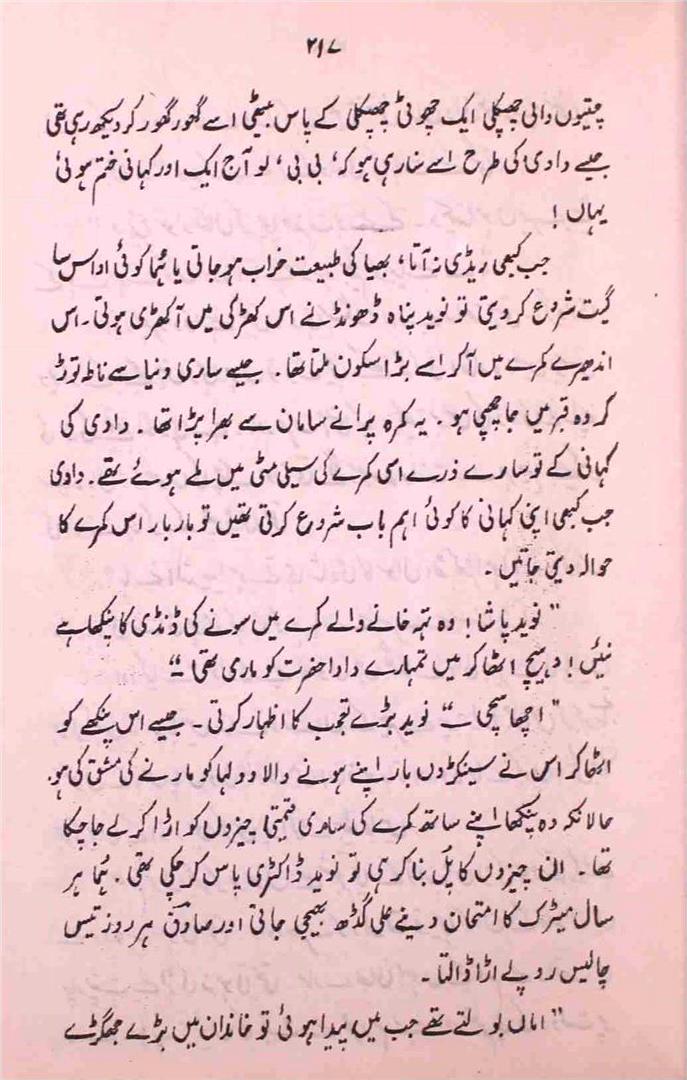 ۲۱۷
چتیوں والی چھپکلی ایک چھوٹی چھپکلی کے پاس بیٹھی اسے گھور گھور کر دیکھ رہی تھی
جیسے دادی کی طرح اسے سنا رہی ہو کہ ، بی بی ، لو آج ایک اور کہانی ختم ہوئی
یہاں !
جب کبھی ریڈی نہ آتا ، بھیا کی طبیعت خراب ہو جاتی یا ہُما کوئی اداس سا
گیت شروع کر دیتی تو نوید پناہ ڈھونڈنے اس کھڑکی میں آ کھڑی ہوتی ۔ اس
اندھیرے کمرے میں آ کر اسے بڑا سکون ملتا تھا ۔ جیسے ساری دنیا سے ناطہ توڑ
کر وہ قبر میں جا چھپی ہو ۔ یہ کمرہ پرانے سامان سے بھرا پڑا تھا ۔ دادی کی
کہانی کے تو سارے ذرے اسی کمرے کی سیلی مٹی میں ملے ہوئے تھے ۔ دادی
جب کبھی اپنی کہانی کا کوئی اہم باب شروع کرتی تھیں تو بار بار اس کمرے کا
حوالہ دیتی جاتیں ۔
" نوید پاشا ! وہ تہہ خانے والے کمرے میں سونے کی ڈنڈی کا پنکھا ہے
نئیں ! وہیچ اٹھا کر میں تمہارے دادا حضرت کو ماری تھی ! "
" اچھا سچی ــ " نوید بڑے تعجب کا اظہار کرتی ۔ جیسے اس پنکھے کو
اٹھا کر اس نے سینکڑوں بار اپنے ہونے والا دولہا کو مارنے کی مشق کی ہو ۔
حالانکہ وہ پنکھا اپنے ساتھ کمرے کی ساری قیمتی چیزوں کو اڑا کر لے جا چکا
تھا ۔ ان چیزوں کا پُل بنا کر ہی تو نوید ڈاکٹری پاس کر چکی تھی ۔ ہُما ہر
سال میٹرک کا امتحان دینے علی گڈھ بھیجی جاتی اور صادق ہر روز تیس
چالیس روپے اڑا ڈالتا ۔
" اماں بولتے تھے جب میں پیدا ہوئی تو خاندان میں بڑے جھگڑے